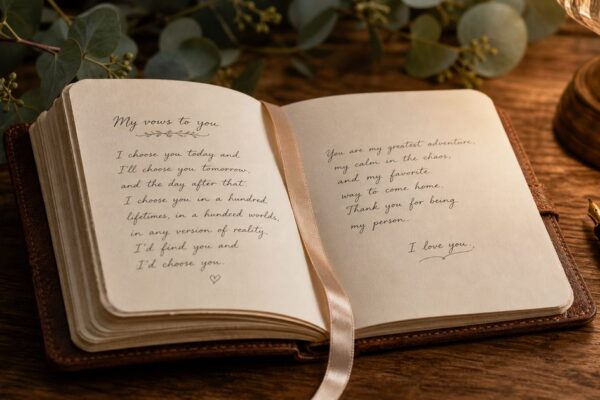 My vows to you
I choose you today and
I'll choose you tomorrow,
and the day after that.
I choose you in a hundred
lifetimes, in a hundred worlds,
in any version of reality.
I'd find you and
I'd choose you.
You are my greatest adventure,
my calm in the chaos,
and my favorite
way to come home.
Thank you for being
my person.
I love you.